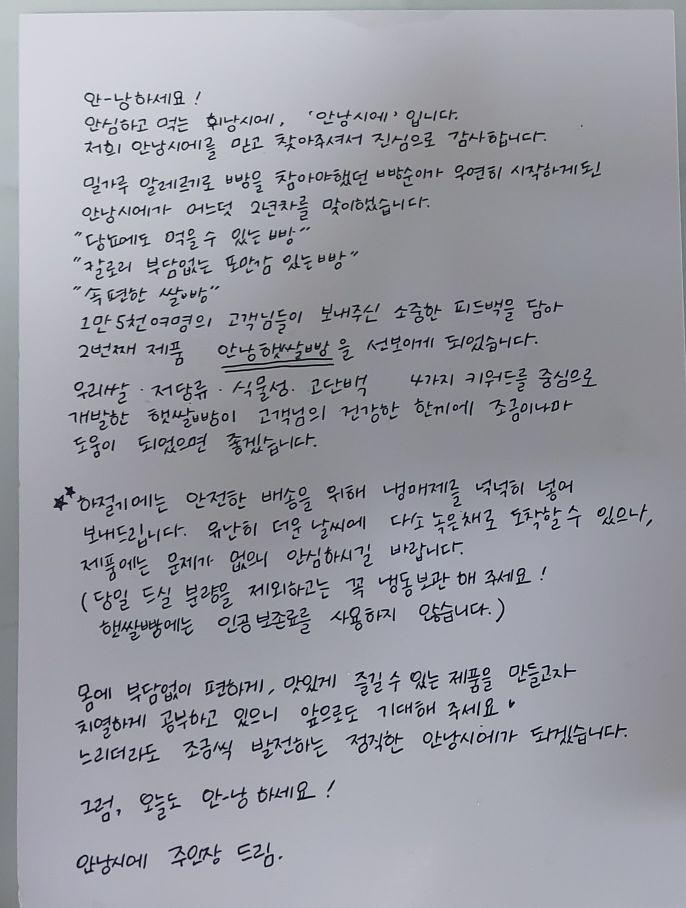 안-낭하세요!
안심하고 먹는 휘낭시에, '안낭시에' 입니다.
저희 안낭시에를 믿고 찾아주셔서 진심으로 감사합니다.
밀가루 알레르기로 빵을 참아야했던 빵순이가 우연히 시작하게된
안낭시에가 어느덧 2년차를 맞이했습니다.
"당뇨에도 먹을 수 있는 빵"
"칼로리 부담없는 포만감 있는 빵"
"속편한 쌀빵"
1만 5천여명의 고객님들이 보내주신 소중한 피드백을 담아
2번째 제품 안낭햇쌀빵을 선보이게 되었습니다.
우리쌀 · 저당류 · 식물성 · 고단백 4가지 키워드를 중심으로
개발한 햇쌀빵이 고객님의 건강한 한끼에 조금이나마
도움이 되었으면 좋겠습니다.
★★하절기에는 안전한 배송을 위해 냉매제를 넉넉히 넣어
보내드립니다. 유난히 더운 날씨에 다소 녹은채로 도착할 수 있으나,
제품에는 문제가 없으니 안심하시길 바랍니다.
(당일 드실 분량을 제외하고는 꼭 냉동보관 해 주세요!
햇쌀빵에는 인공보존료를 사용하지 않습니다.)
몸에 부담없이 편하게, 맛있게 즐길 수 있는 제품을 만들고자
치열하게 공부하고 있으니 앞으로도 기대해 주세요♥
느리더라도 조금씩 발전하는 정직한 안낭시에가 되겠습니다.
그럼, 오늘도 안-낭하세요!
안낭시에 주인장 드림.